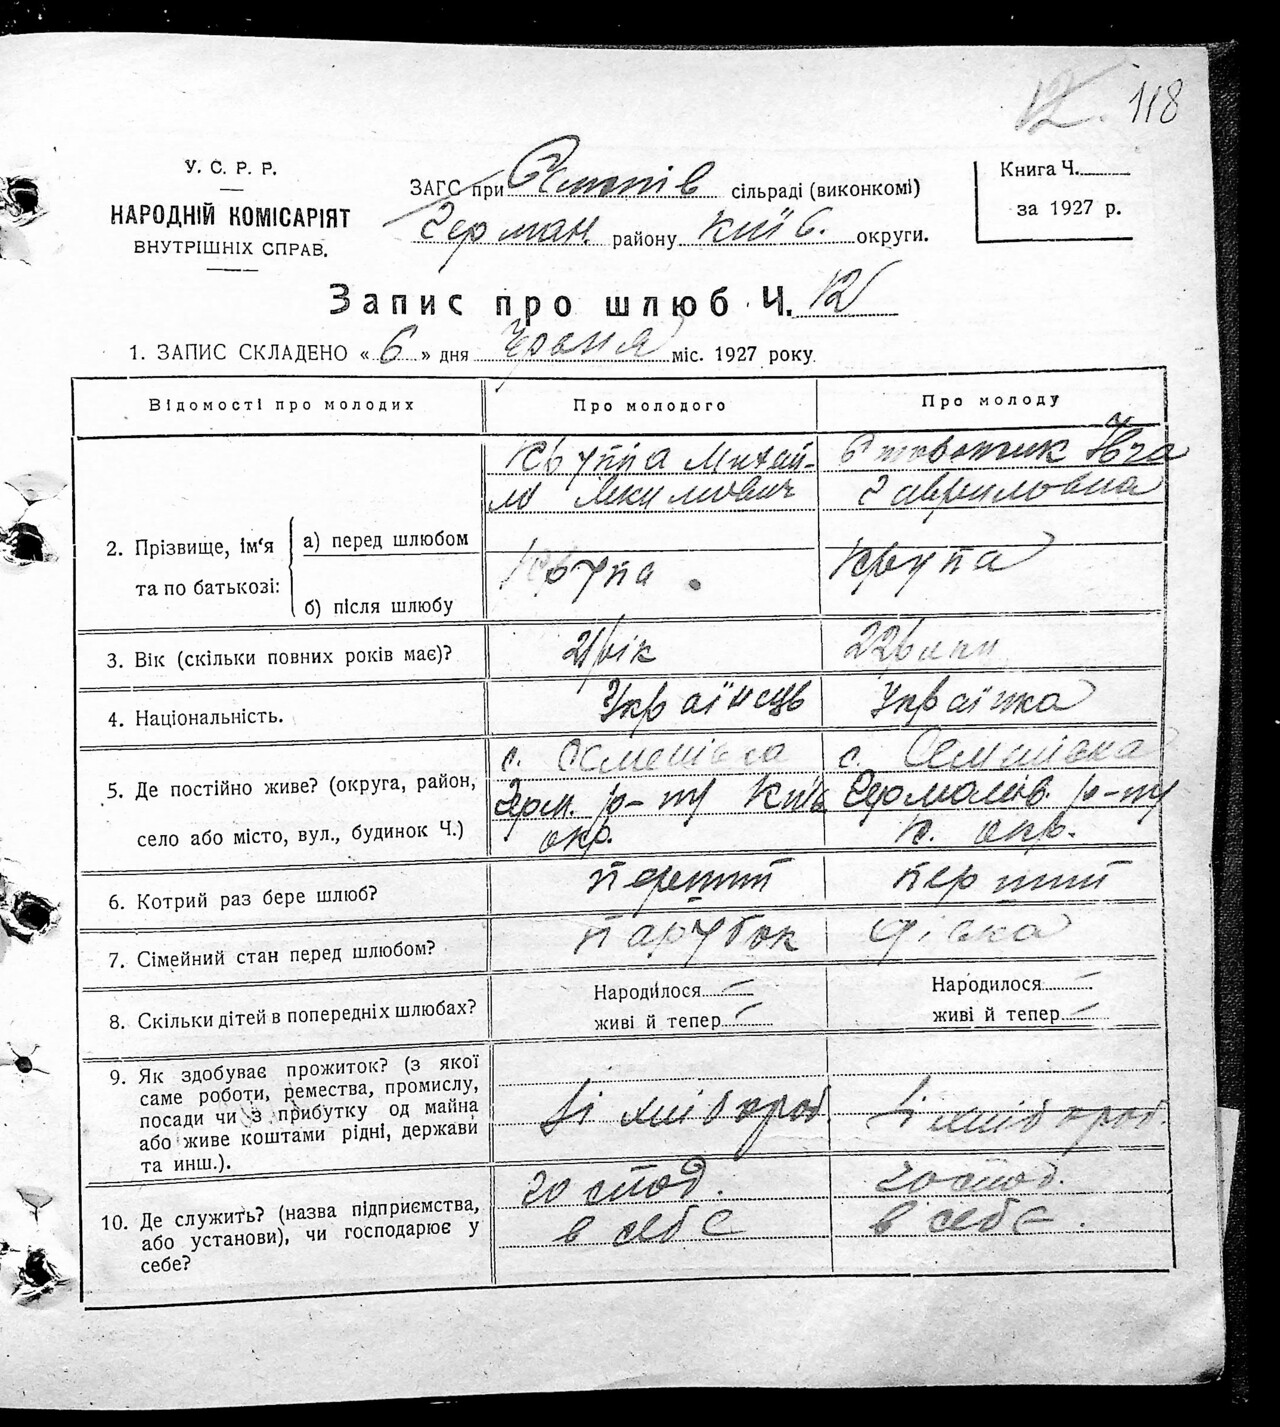 12. 118
У. С. Р. Р.
НАРОДНІЙ КОМІСАРІЯТ
ВНУТРІШНІХ СПРАВ.
ЗАГС при сільраді (виконкомі)
Герман. району Київ. округи.
Книга Ч.
за 1927 р.
Запис про шлюб Ч. 12
1. ЗАПИС СКЛАДЕНО « 6 » дня міс. 1927 року
Відомості про молодих
Про молодого
Про молоду
2. Прізвище, ім'я та по батькозі:
а) перед шлюбом
Круппа Михай-
ло Якимович
Івга
Гавриловна
б) після шлюбу
Крупа
Крупа
3. Вік (скільки повних років має)?
21 рік
22 роки
4. Національність.
Українець
Українка
5. Де постійно живе? (округа, район,
село або місто, вул., будинок Ч.)
с. Семенівка
Герм. р-ну Київ
окр.
с. Семенівка
Германів. р-ну
К. окр.
6. Котрий раз бере шлюб?
перший
перший
7. Сімейний стан перед шлюбом?
парубок
дівка
8. Скільки дітей в попередніх шлюбах?
Народилося —
живі й тепер —
Народилося —
живі й тепер —
9. Як здобуває прожиток? (з якої
саме роботи, ремества, промислу,
посади чи з прибутку од майна
або живе коштами рідні, держави
та инш.).
хлібороб.
хлібороб.
10. Де служить? (назва підприємства,
або установи), чи господарює у
себе?
господ.
в себе
господ.
в себе.